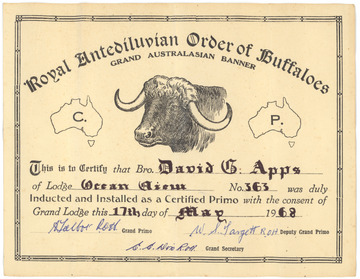 Royal Antediluvian Order of Buffaloes
GRAND AUSTRALASIAN BANNER
C. P.
This is to Certify that Bro. David G. Apps
of Lodge Ocean View No. 363 was duly
Inducted and Installed as a Certified Primo with the consent of
Grand Lodge this 17th day of May 1968
Grand Primo Deputy Grand Primo
Grand Secretary